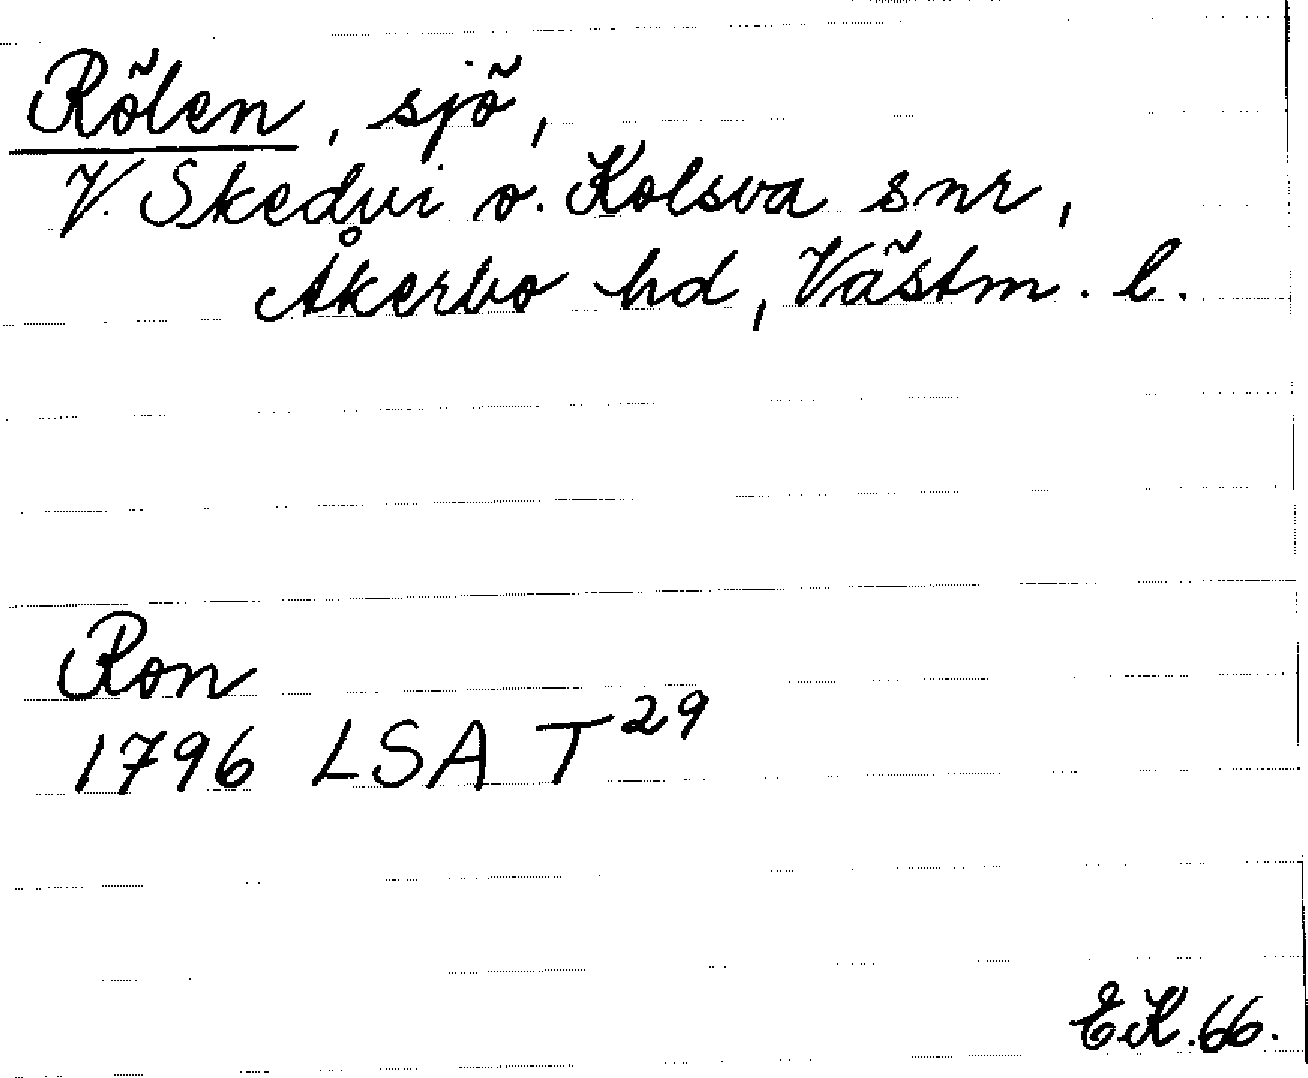 Rölen, sjö,
V. Skedvi o. Kolsva snr,
Åkerbo hd, Västm. l.
Ron
1796 LSA T 29
EK. 66.